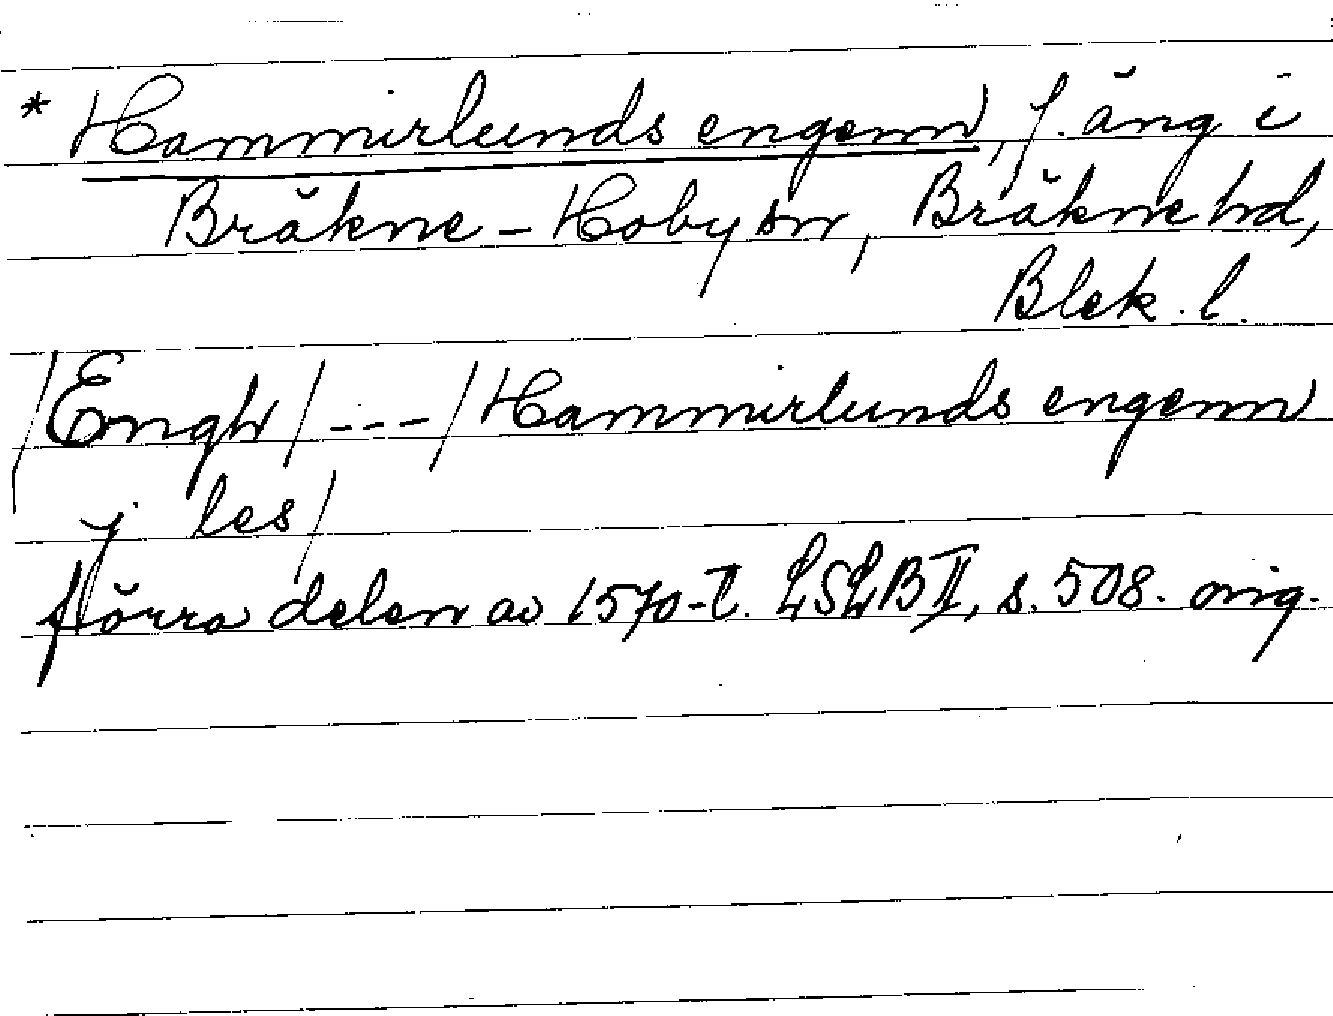 * Hammirlunds engenn, f. äng i
Bräkne-Hoby sn, Bräkne hd,
Blek. l.
/Engh/ --- /Hammirlunds engenn
j les/
förra delen av 1570-t. LSLB II, s. 508. orig.